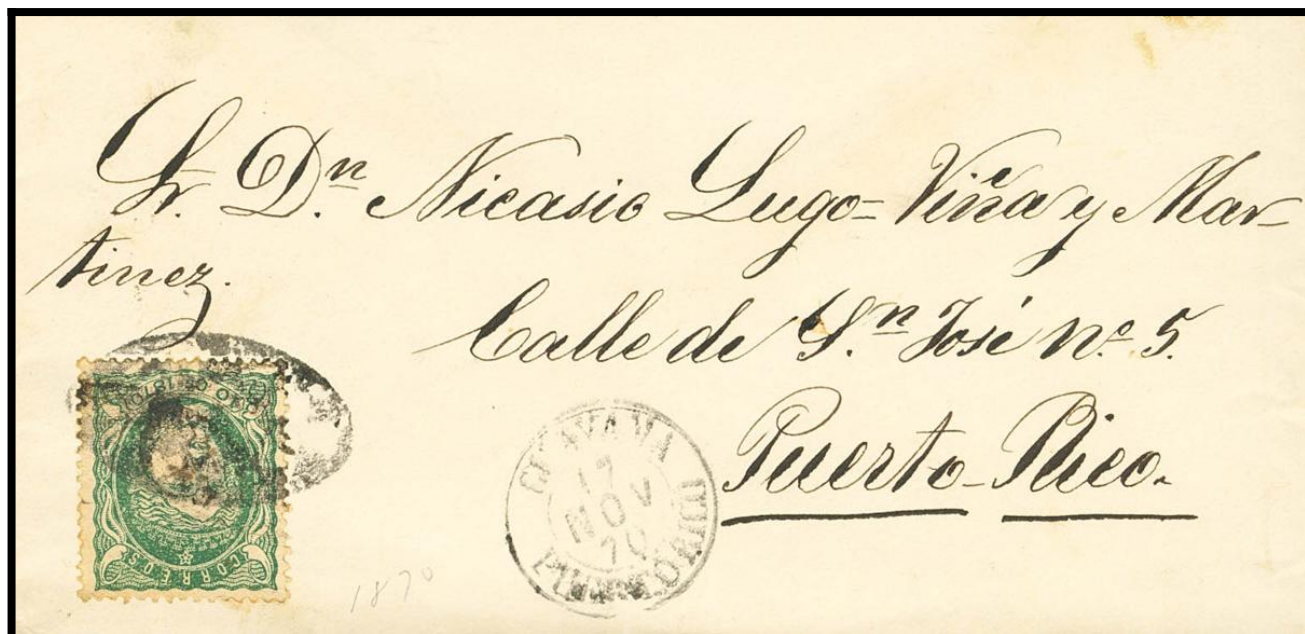 Sr. Dn. Nicasio Lugo=Viña y Mar-
tinez.
Calle de Sn. José no. 5.
Puerto-Rico.
GUAYAMA
17
NOV
70
PUERTO RICO
CORREOS
1870